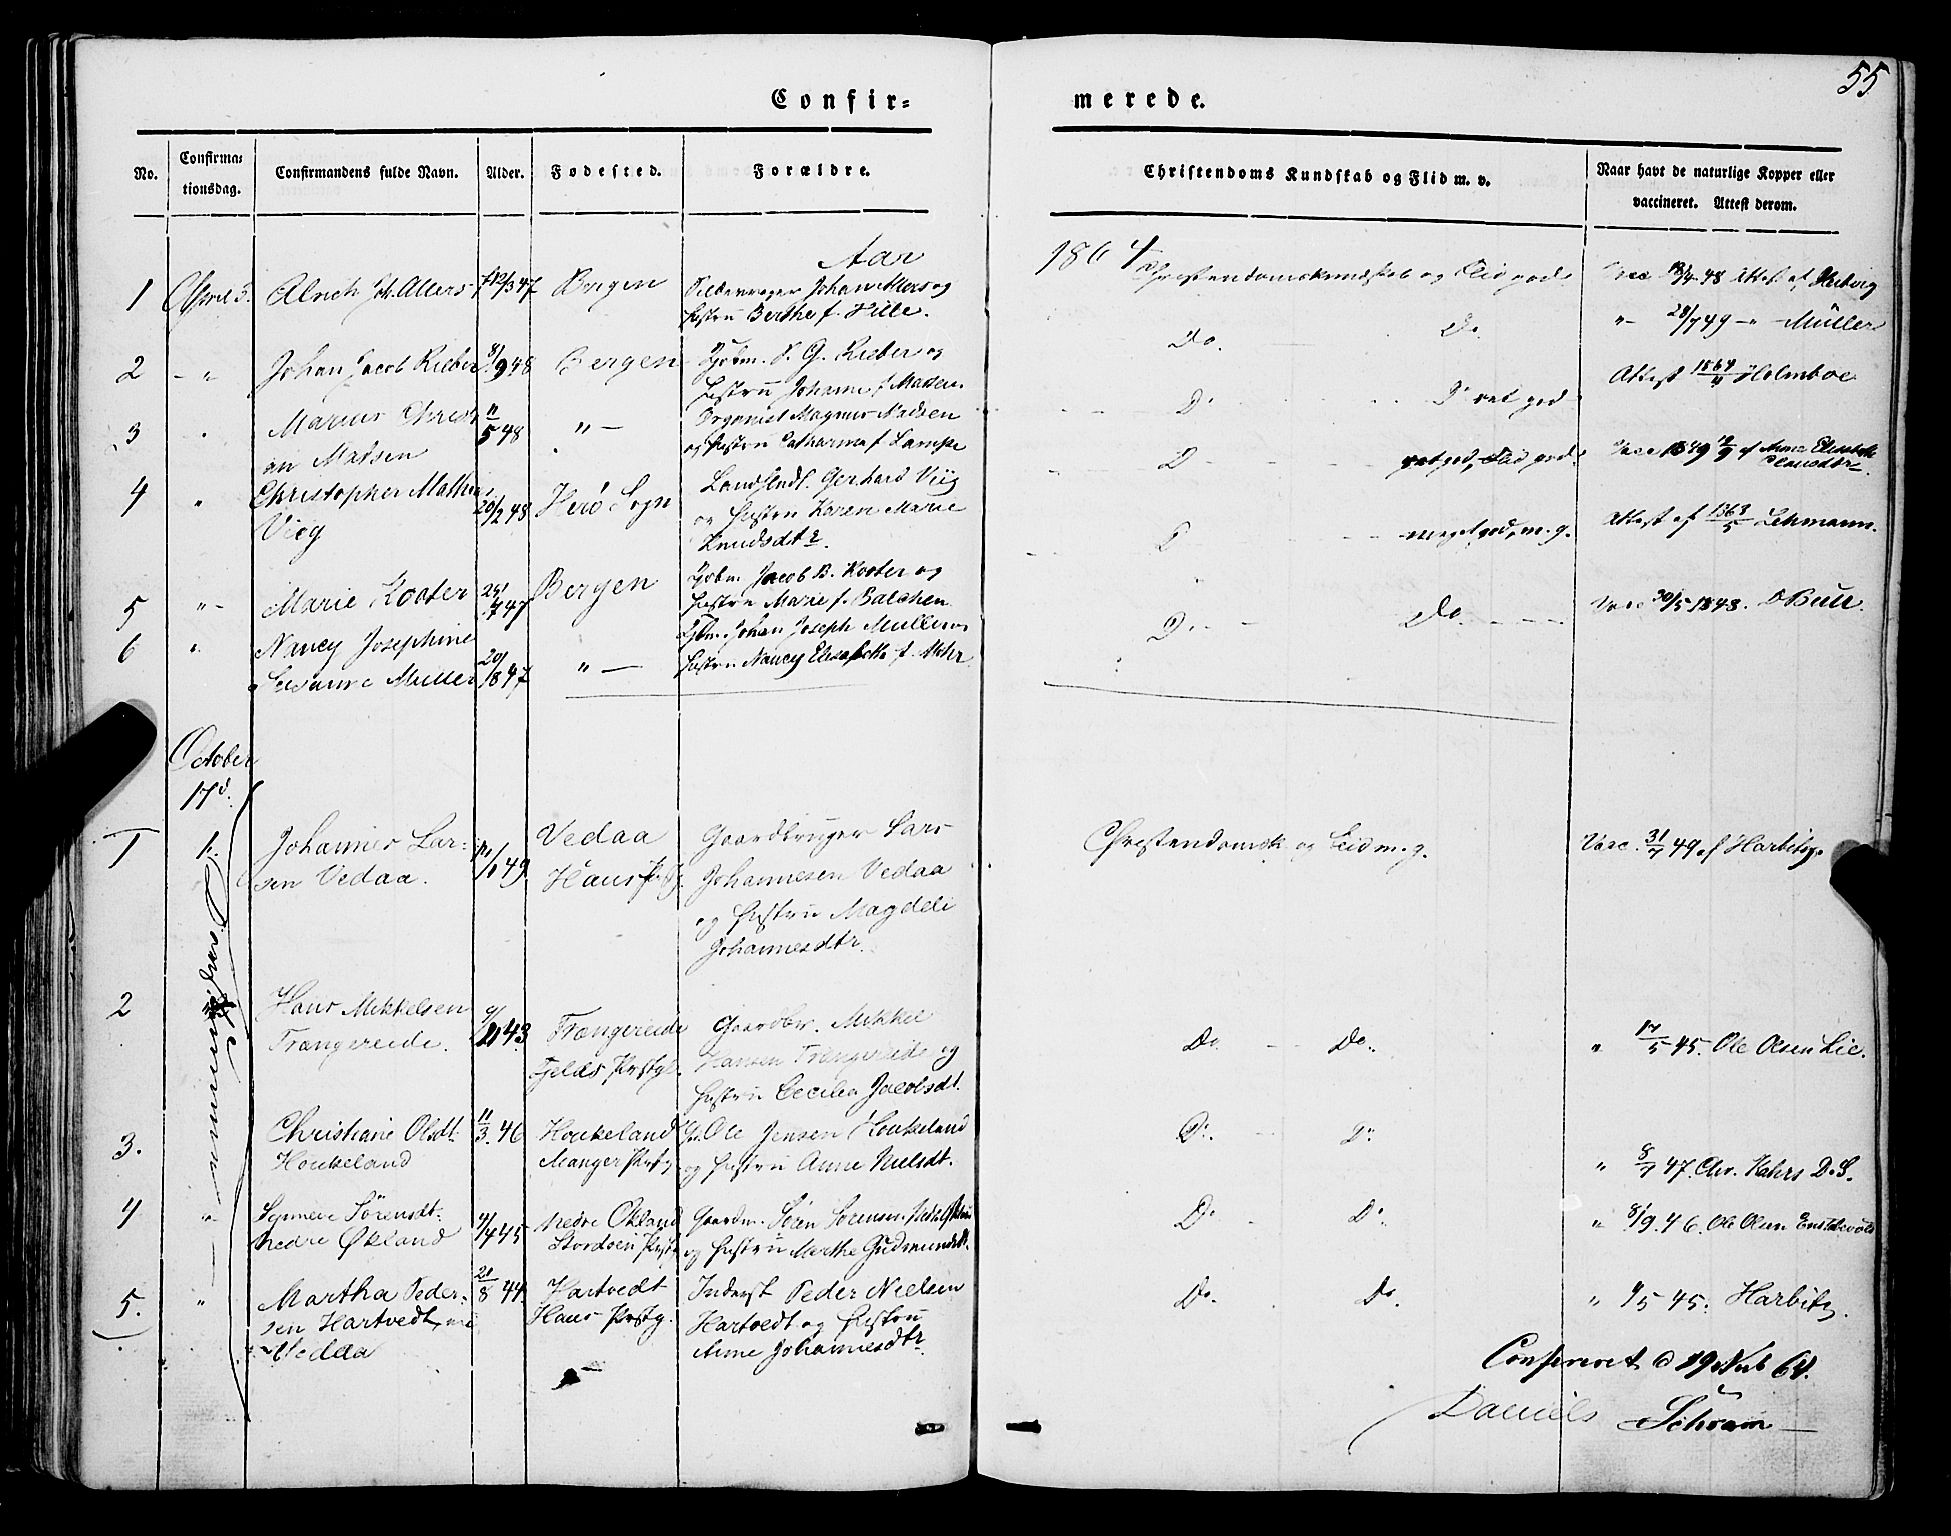 55
Confir= merede.
No. Confirma=tionsdag. Confirmandens fulde Navn. Alder. Fødested. Forældre. Christendoms Kundskab og Flid m. v. Naar havt de naturlige Kopper eller vaccineret. Attest derom.
Aar 1864
1 April 3. Alrich Allers 12/3 47 Bergen Johan Allers og
Hustru Berthe f. Hille.
Christendomskundskab og Flid god. Vacc 18/4 48 Attest af Herbrig
2 - " Johan Jacob Rieber 8/9 48 Bergen Kjøbm. P. G. Rieber og
Hustru Johanne f. Madsen.
Do. Do. "- 28/7 49 -"- Müller
3 " Marius Christi
an Madsen
11/5 48 "- Organist Magnus Madsen
og Hustru Catharina f. Lampe
Do D. ret god Attest 1864/4 Holmboe
4 " Christopher Mathias
Viig
20/2 48 Herø Sogn Landhndl. Gerhard Viig
og Hustru Karen Marie
Knudsdtr.
D ret god, Flid god. Vacc 1849 af Anne Elisabeth
5 "- Marie Kooter 24/7 47 Bergen Kjøbm. Jacob B. Kooter og
Hustru Marie f. Balchen
D meget god, m. g. Attest af 1863/5 Lehmann.
6 " Nancy Josephine
Susanne Müller
20/8 47 "- Kjøbm. Johan Joseph Müller og
Hustru Nancy Elisabeth f. Mohr.
D. - Do. Vacc 30/5 1848. Bull.
October
17d.
1 Johannes Lar=
sen Vedaa.
49 Vedaa
Haus Prstg.
Gaardbruger Lars
Johannesen Vedaa
og Hustru Magdeli
Johannesdtr.
Christendomsk og Flid m. g. Vacc. 31/7 49 af Harbitz.
2 Hans Mikkelsen
Trængereide.
43 Trængereide
Fjelds Prstgl.
Gaardbr. Mikkel
Hansen Trængereide og
Hustru Cecilia Jacobsdt.
Do. - Do. " 17/5 45. Ole Olsen Lie.
3. Christiane Olsdt.
Houkeland
11/3. 46 Houkeland
Manger Prstg
Ole Jensen Houkeland
og Hustru Anne Nielsdt.
D. D. " 8/7 47. Chr. Kahrs D. S.
4 " Synneve Sørensdt.
nedre Økland
4/4 45 nedre Økland
Stordøen Prstg
Gaardm. Søren Sørensen Nedre Økland
og Hustru Marthe Gudmundsdt.
Do D. " 8/9. 46. Ole Olsen
5. " Martha Peder=
sen Hartvedt,
Vedaa
21/8 44. Hartvedt
Haus Prstg.
Inderst Peder Nielsen
Hartvedt og Hustru
Anne Johannesdtr
Do. Do. " 9/5 45. Harbitz.
Confereret d 19 64.
Daniels Schram